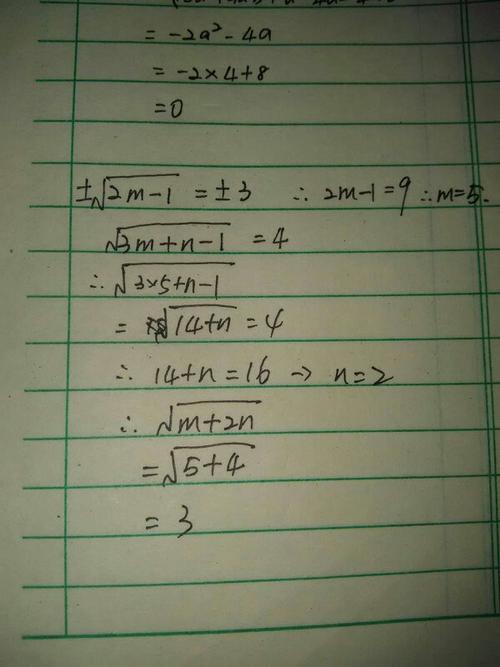 = -2a² - 4a
= -2×4+8
=0
±√(2m-1) = ±3 ∴ 2m-1=9 ∴ m=5.
√(3m+n-1) = 4
∴ √(3×5+n-1)
= √(14+n) = 4
∴ 14+n=16 → n=2
∴ √(m+2n)
= √(5+4)
= 3